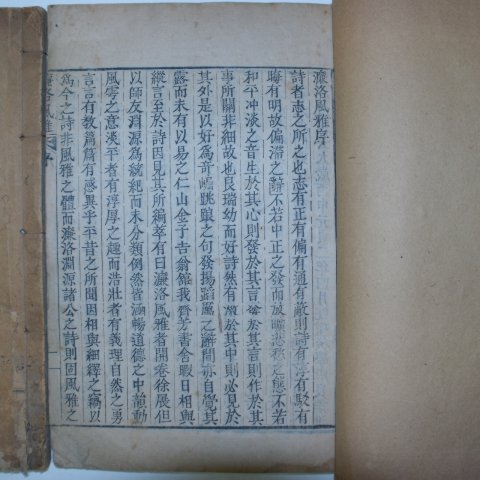 濂洛風雅序
詩者志之所之也志有正有偏有通有蔽則詩有淳有駁有
晦有明故偏滯之辭不若中正之發而放曠悲愁之態不若
和平冲淡之音生於其心則發於其言發於其言則作於其
事所關非細故也良瑞幼而好詩然有 於其中則必見於
其外是以好爲奇崛跳踉之句發揚蹈厲之辭間亦自覺其
露而未有以易之仁山金子吉翁館我齊芳書舍暇日相與
縱言至於詩因見其所編萃有曰濂洛風雅者開卷徐展但
以師友淵源爲統紀而未分類例然皆涵暢道德之中韻動
風雩之意淡平者有淳厚之趣而浩壯者有義理自然之勇
言言有教篇篇有感異乎平昔之所聞因相與紬繹之竊以
爲今之詩非風雅之體而濂洛淵源諸公之詩則固風雅之
濂洛風雅 序